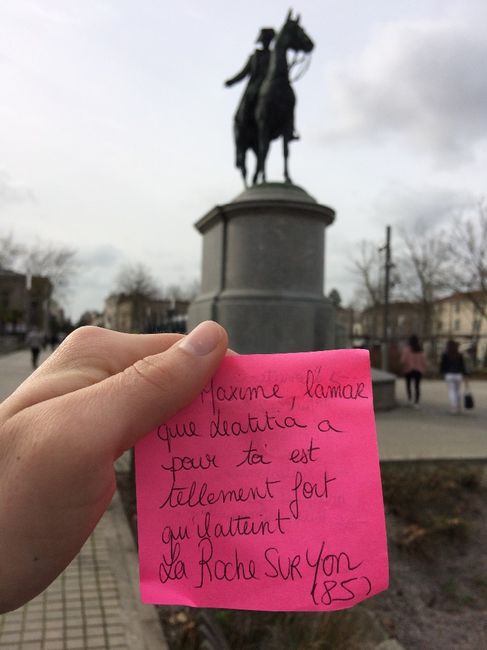 Maxime, l'amar
que Leatitia a
pour toi est
tellement fort
qu'il atteint
La Roche SUR Yon
(85)